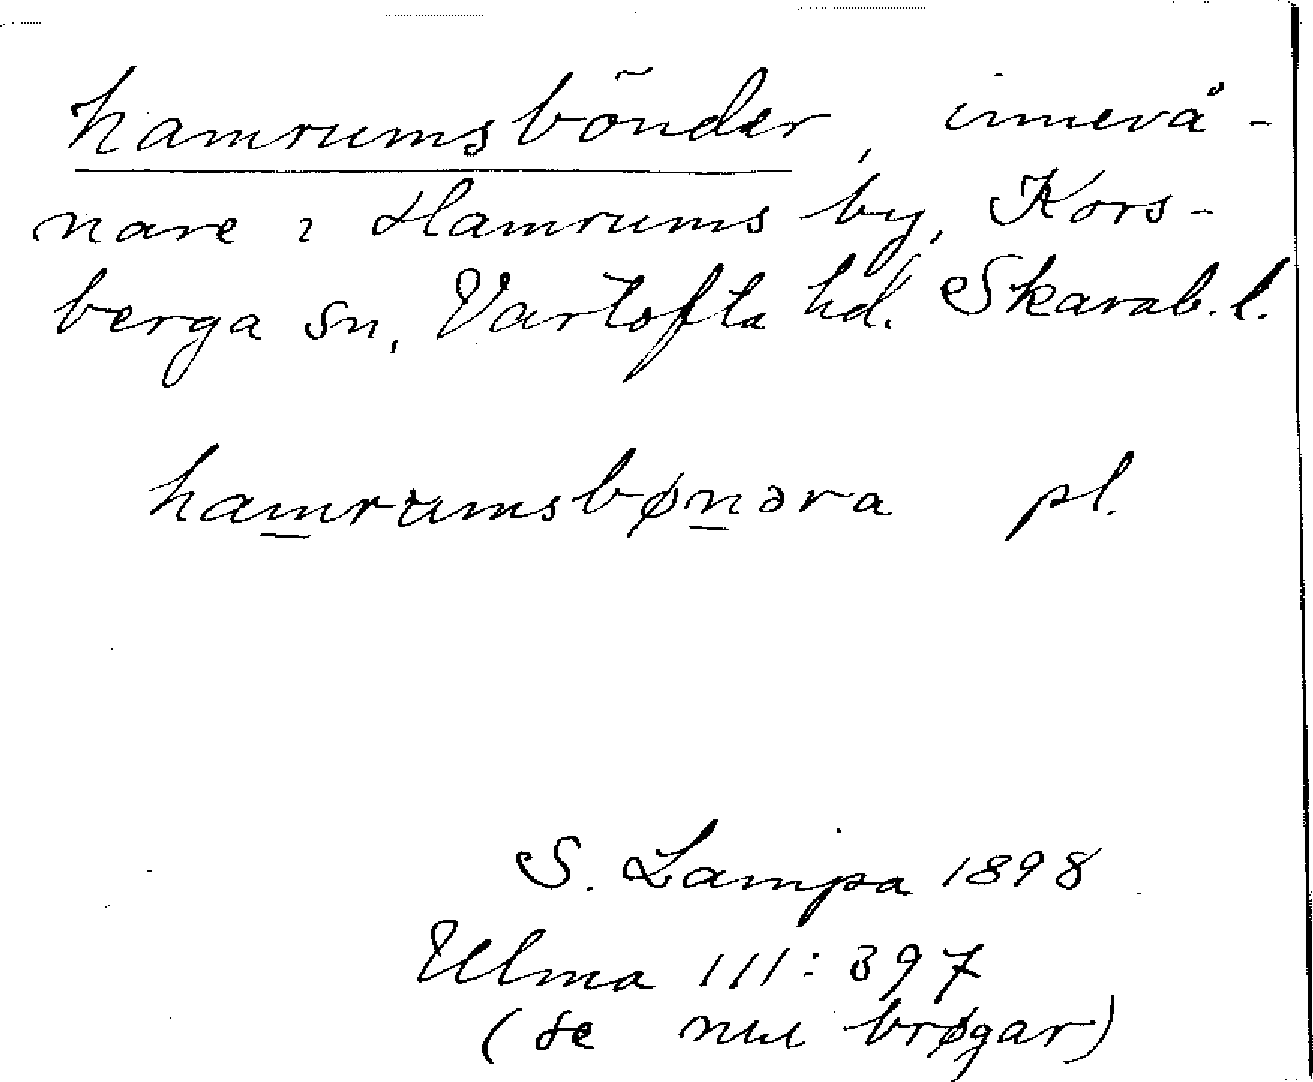 hamrumsbönder, innevå-
nare i Hamrums by, Kors-
berga sn, Vartofta hd. Skarab. l.
hamrumsbønəra pl.
S. Lampa 1898
Ulma 111:397
(se brøgar)